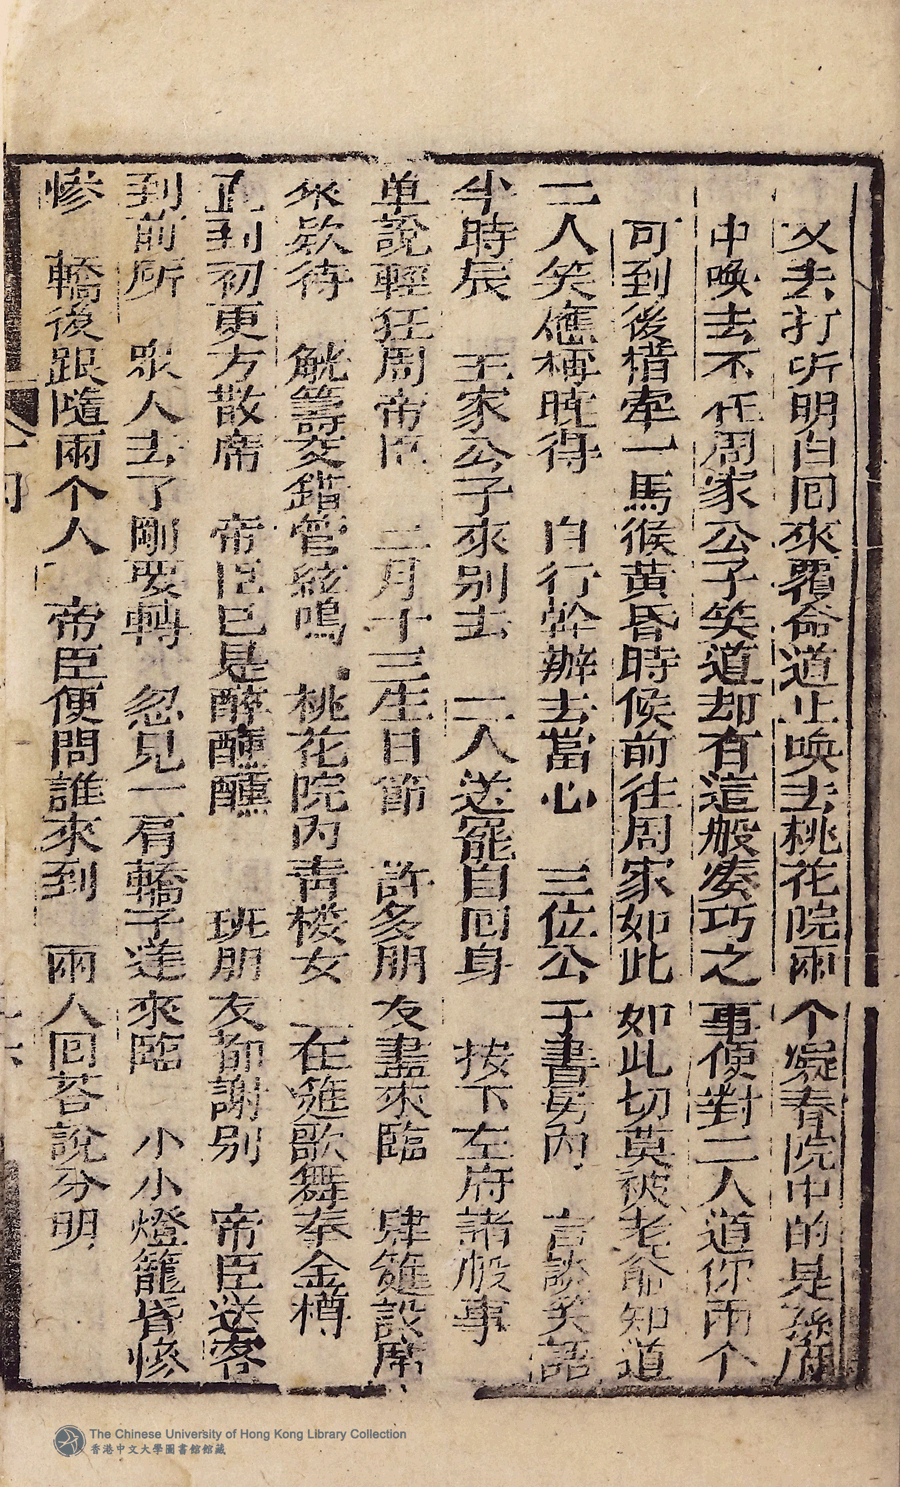 又去打听明白回來覆命道止喚去桃花院兩个凝春院中的是孫府
中喚去不在周家公子笑道却有這般湊巧之事便對二人道你兩个
可到後槽牽一馬候黄昏時候前往周家如此如此切莫被老爺知道
二人笑應稱曉得　自行幹辦去當心　三位公子書房內　言談笑語
半時辰　王家公子來别去　二人送罷自回身　按下左府諸般事
单說輕狂周帝臣　二月十三生日節　許多朋友盡來臨　肆筵設席
來欵待　觥籌交錯管絃鳴　桃花院內青楼女　在筵歌舞奉金樽
直到初更方散席　帝臣已是醉醺醺　班朋友都謝别　帝臣送客
到前所　衆人去了剛要轉　忽見一肩轎子逩來臨　小小燈籠昏慘
慘　轎後跟隨兩个人　帝臣便問誰來到　兩人回荅說分明
The Chinese University of Hong Kong Library Collection
香港中文大學圖書館館藏